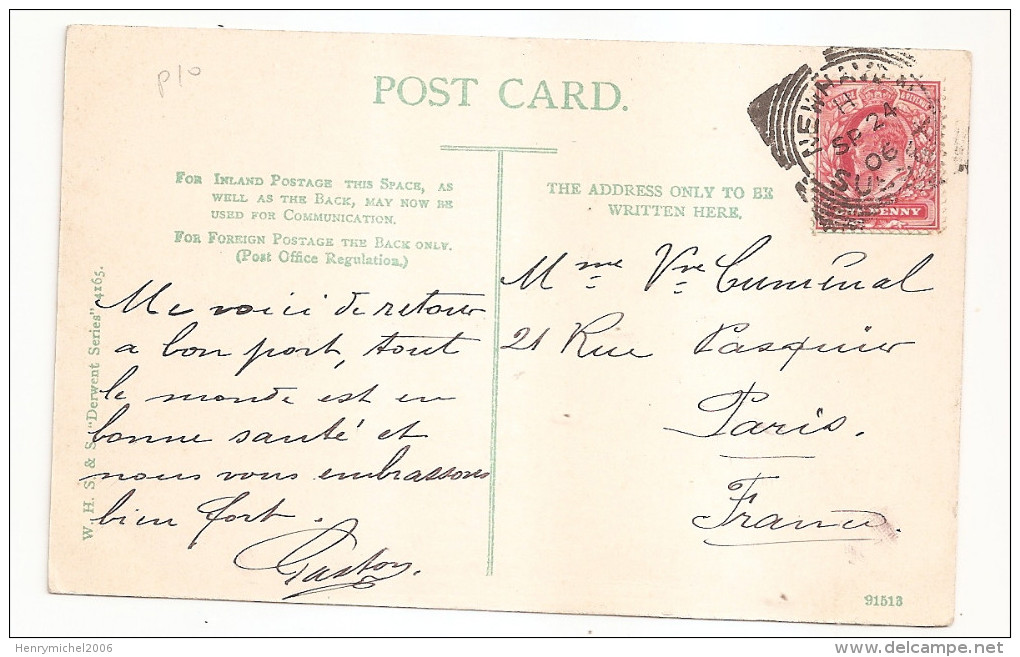 p10
POST CARD.
NEWHAVEN
H
SP 24
06
PENNY
FOR INLAND POSTAGE THIS SPACE, AS
WELL AS THE BACK, MAY NOW BE
USED FOR COMMUNICATION.
FOR FOREIGN POSTAGE THE BACK ONLY.
(Post Office Regulation.)
THE ADDRESS ONLY TO BE
WRITTEN HERE.
W. H. S. & S. "Derwent Series" 4165.
Me voici de retour
a bon port, tout
le monde est en
bonne santé et
nous vous embrassons
bien fort.
Gaston.
Mme Vve
21 Rue Pasquier
Paris.
France.
91513
Henrymichel2006
delcampe.net